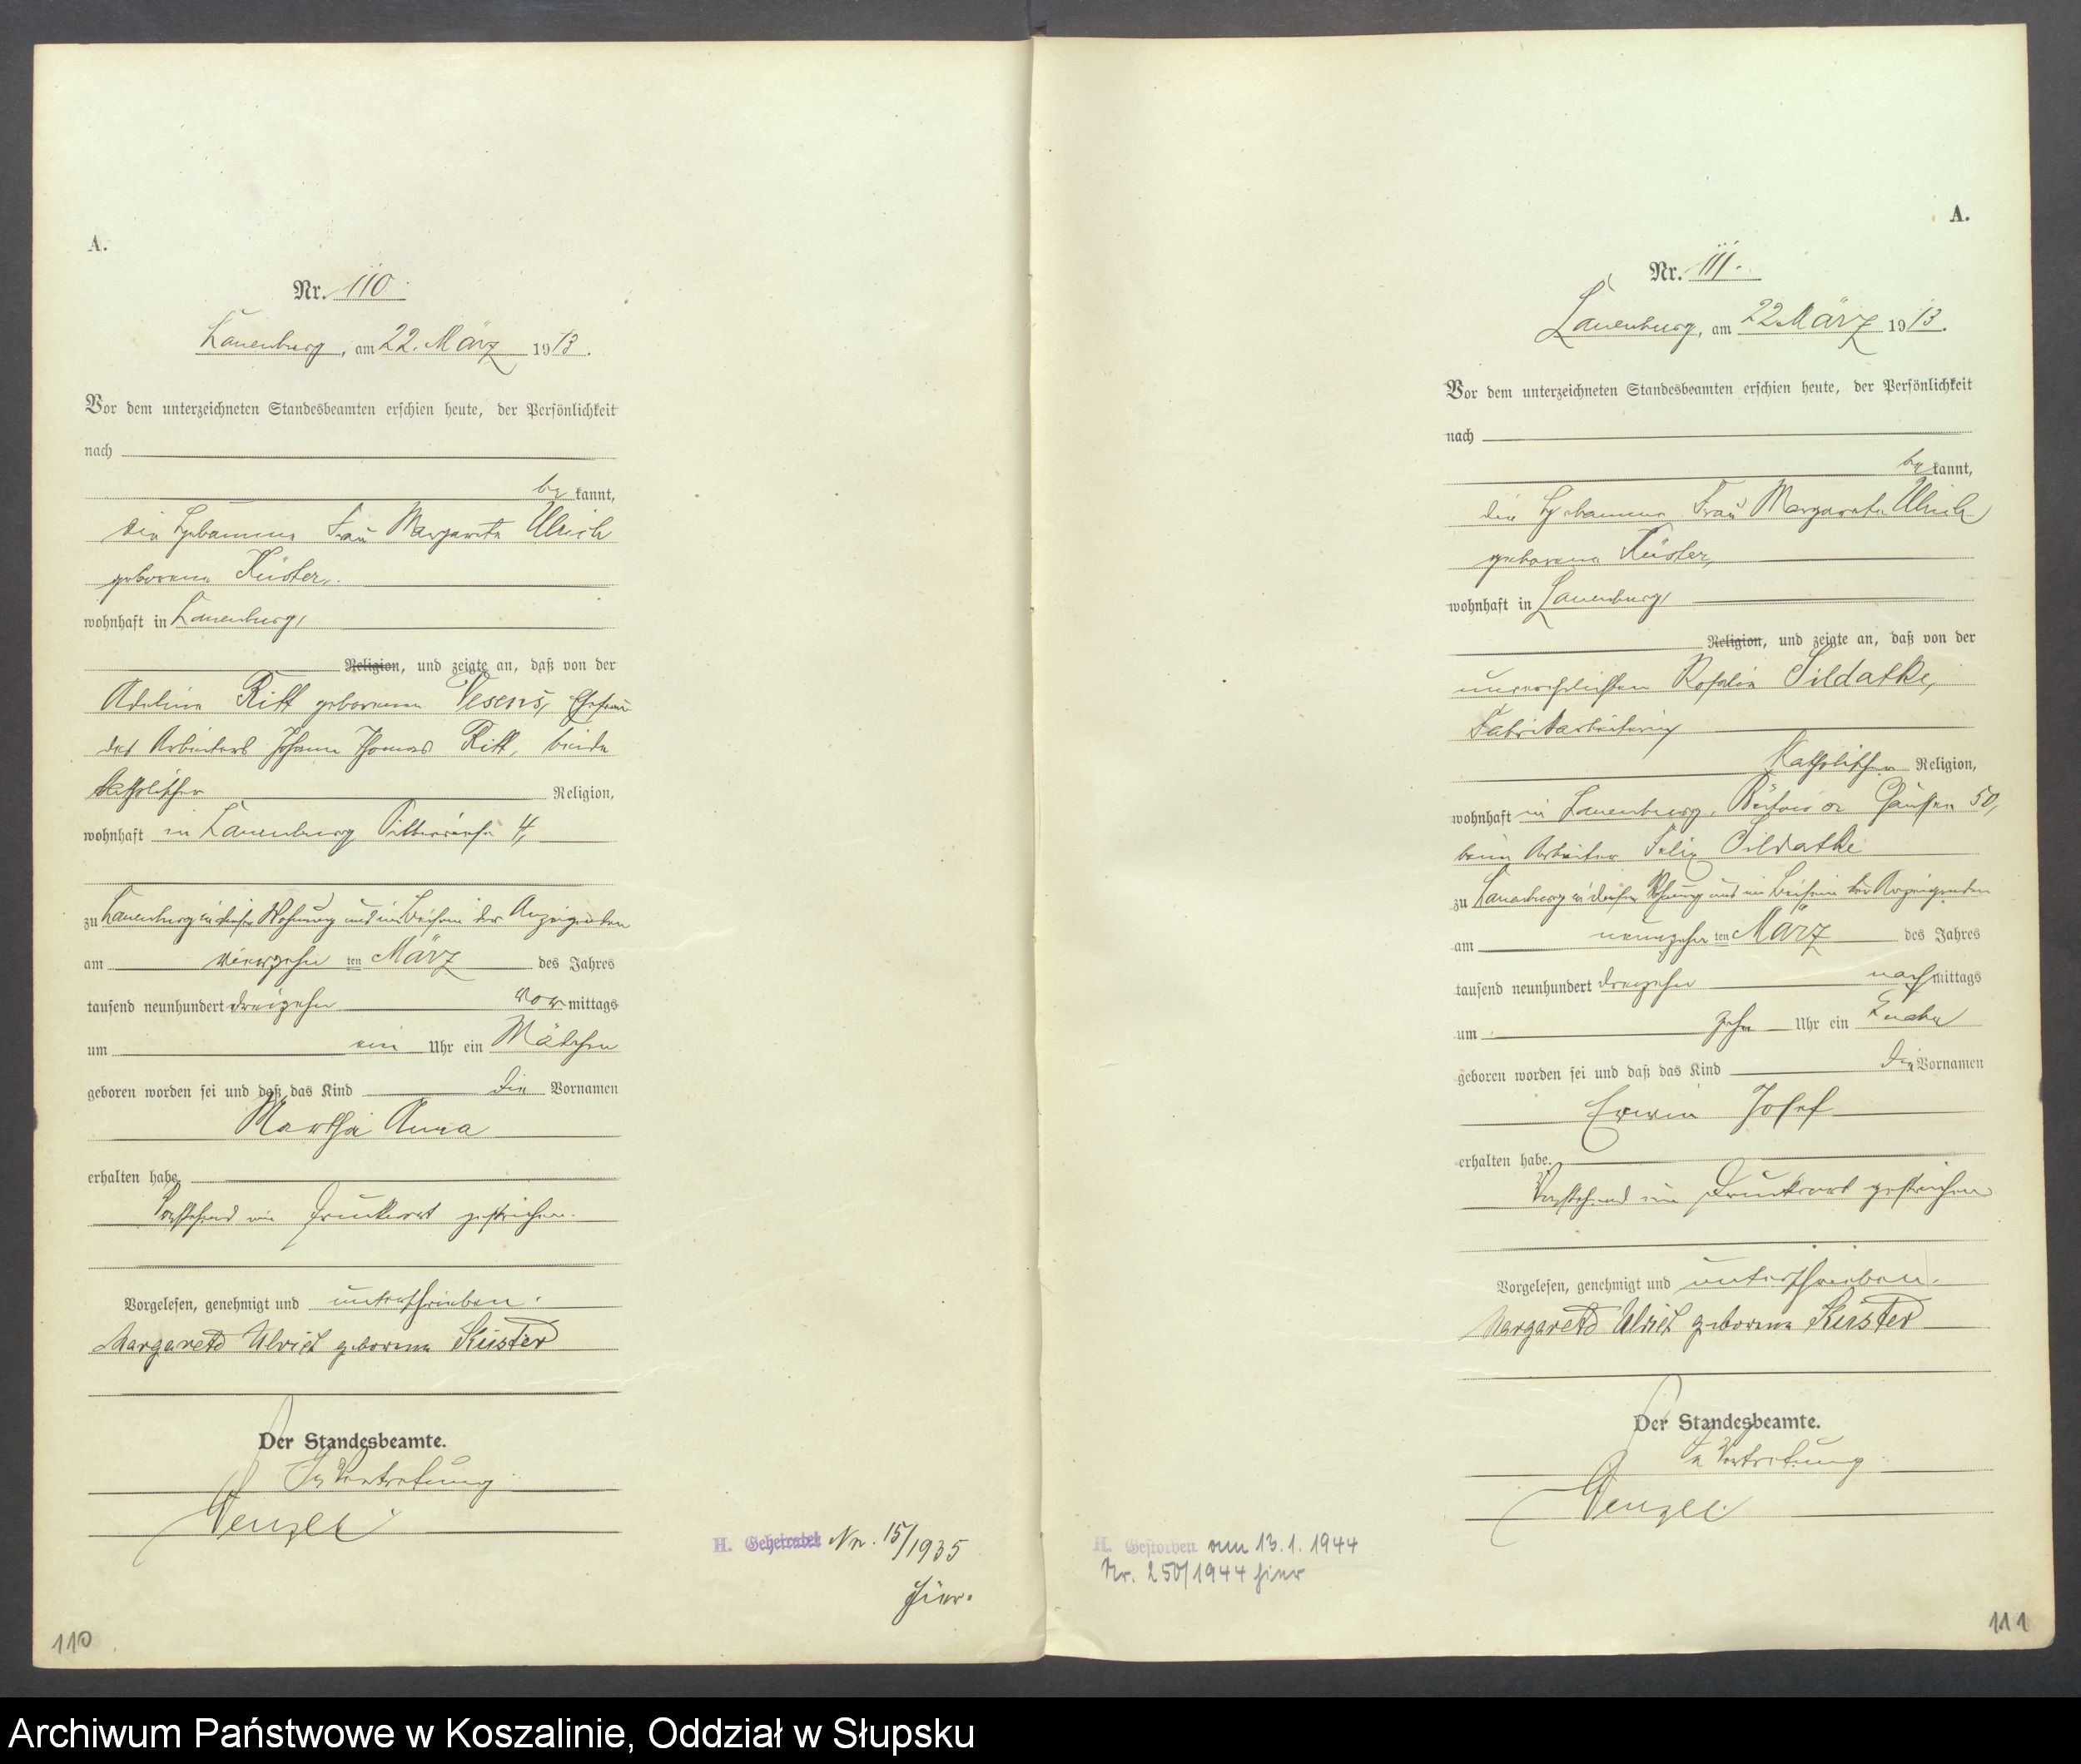 A.
Nr. 110.
Lauenburg, am 22. März 1913.
Vor dem unterzeichneten Standesbeamten erschien heute, der Persönlichkeit
nach
be kannt,
die Hebamme Frau Margarete Ulrich
geborene Küster,
wohnhaft in Lauenburg,
Religion, und zeigte an, daß von der
Adeline Ritt geborenen Vesens, Ehefrau
des Arbeiters Johann Thomas Ritt, beide
katholischer Religion,
wohnhaft in Lauenburg 4,
zu Lauenburg in dieser Wohnung und im Beisein der Anzeigenden
am vierzehn ten März des Jahres
tausend neunhundert dreizehn vor mittags
um ein Uhr ein Mädchen
geboren worden sei und daß das Kind die Vornamen
Martha Anna
erhalten habe.
Vorstehend ein Druckwort gestrichen.
Vorgelesen, genehmigt und unterschrieben.
Margarete Ulrich geborene Küster
Der Standesbeamte.
In Vertretung
Wenzel
H. Geheiratet Nr. 15/1935
hier.
110
A.
Nr. 111.
Lauenburg, am 22 März 1913.
Vor dem unterzeichneten Standesbeamten erschien heute, der Persönlichkeit
nach
be kannt,
die Hebamme Frau Margarete Ulrich
geborene Küster,
wohnhaft in Lauenburg,
Religion, und zeigte an, daß von der
unverehelichten Rosalie Sildatke,
Fabrikarbeiterin
katholischer Religion,
wohnhaft in Lauenburg, 50,
beim Arbeiter Felix Sildatke
zu Lauenburg in dessen Wohnung und im Beisein der Anzeigenden
am neunzehn ten März des Jahres
tausend neunhundert dreizehn nach mittags
um zehn Uhr ein Knabe
geboren worden sei und daß das Kind die Vornamen
Erwin Josef
erhalten habe.
Vorstehend ein Druckwort gestrichen.
Vorgelesen, genehmigt und unterschrieben.
Margarete Ulrich geborene Küster
Der Standesbeamte.
In Vertretung
Wenzel
H. Gestorben am 13.1.1944
Nr. 250/1944 hier
111
Archiwum Państwowe w Koszalinie, Oddział w Słupsku